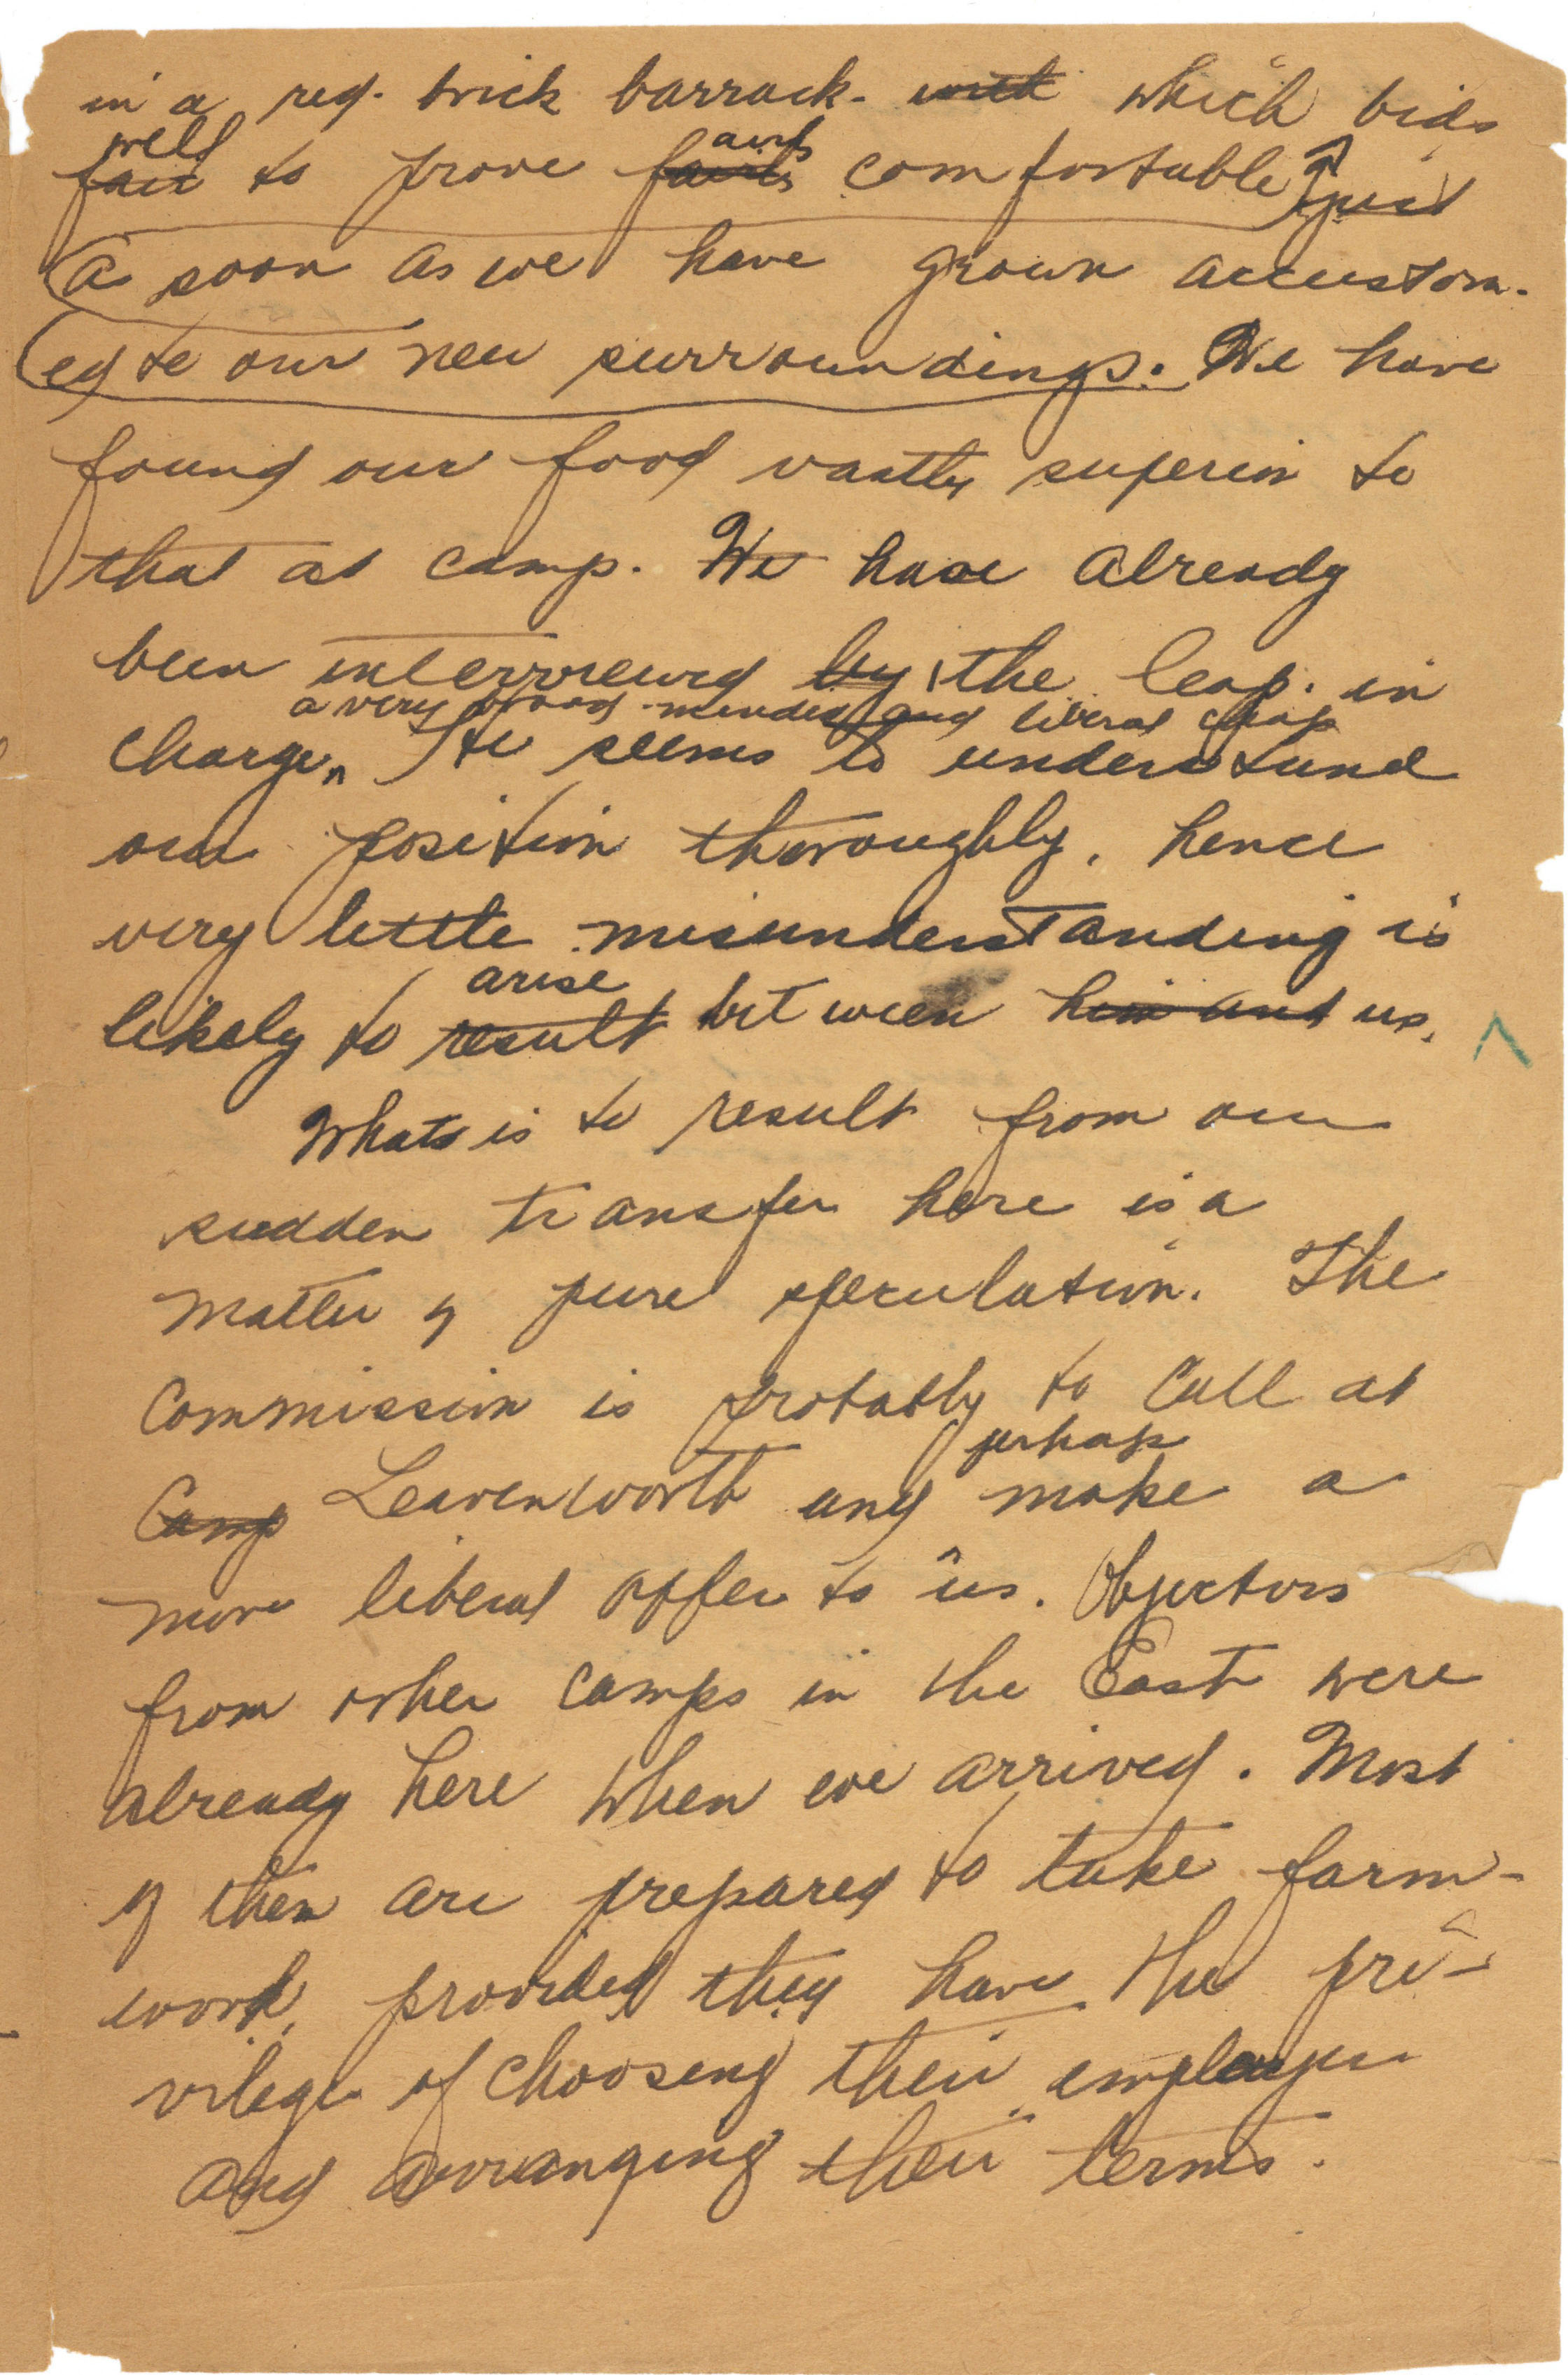 in a red. brick barrack. with which bids
well
fair to prove fairly comfortable just
as soon as we have grown accustom-
ed to our new surroundings. We have
found our food vastly superior to
that at camp. We have already
been interviewed by the Cap. in
a very broad-minded and liberal chap
charge. He seems to understand
our position thoroughly, hence
very little misunderstanding is
arise
likely to result between him and us.
What is to result from our
sudden transfer here is a
matter of pure speculation. The
Commission is probably to call at
perhaps
Camp Leavenworth and make a
more liberal offer to us. Objectors
from other camps in the East were
already here when we arrived. Most
of them are prepared to take farm-
work, provided they have the pri-
vilege of choosing their employer
and arranging their terms.